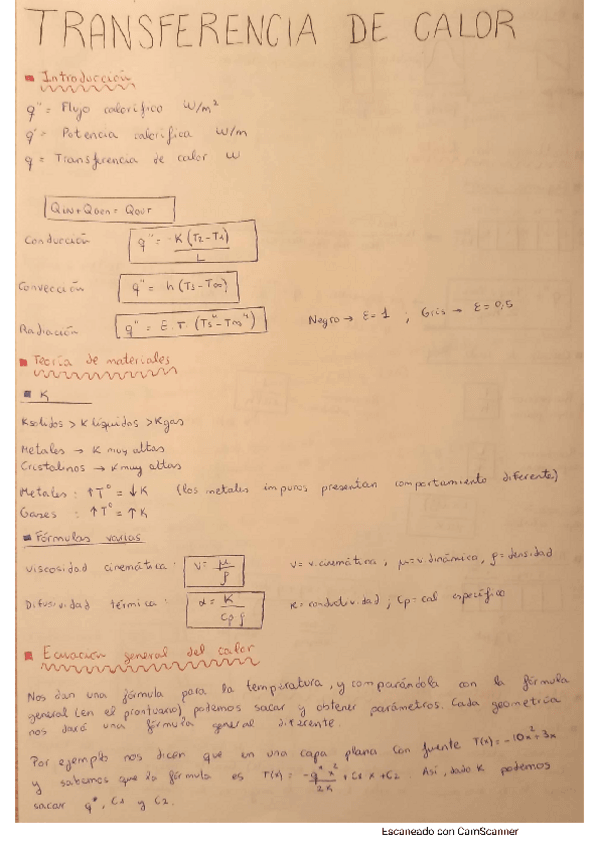 TRANSFERENCIA DE CALOR
Introducción
q" = Flujo calorífico W/m²
q' = Potencia calorífica W/m
q = Transferencia de calor W
QIN + QGEN = QOUT
Conducción q" = -K (T2-T1) / L
Convección q" = h (Ts-T∞)
Radiación q" = E.T. (Ts⁴-T∞⁴) Negro → ε=1 ; Gris → ε=0,5
Teoría de materiales
K
Ksolidos > K líquidos > Kgas
Metales → K muy altas
Cristalinos → K muy altas
Metales : ↑Tº = ↓K (los metales impuros presentan comportamiento diferente)
Gases : ↑Tº = ↑K
Fórmulas varias
viscosidad cinemática: V = μ/ρ V = v. cinemática, μ = v. dinámica, ρ = densidad
Difusividad térmica: α = K / Cp ρ K = conductividad ; Cp = cal específico
Ecuación general del calor
Nos dan una fórmula para la temperatura, y comparándola con la fórmula
general (en el prontuario) podemos sacar y obtener parámetros. Cada geometría
nos dará una fórmula general diferente.
Por ejemplo nos dicen que en una capa plana con fuente T(x) = -10x²+3x
y sabemos que la fórmula es T(x) = -q° x² / 2K + C1 x + C2. Así, dado K podemos
sacar q°, C1 y C2.
Escaneado con CamScanner